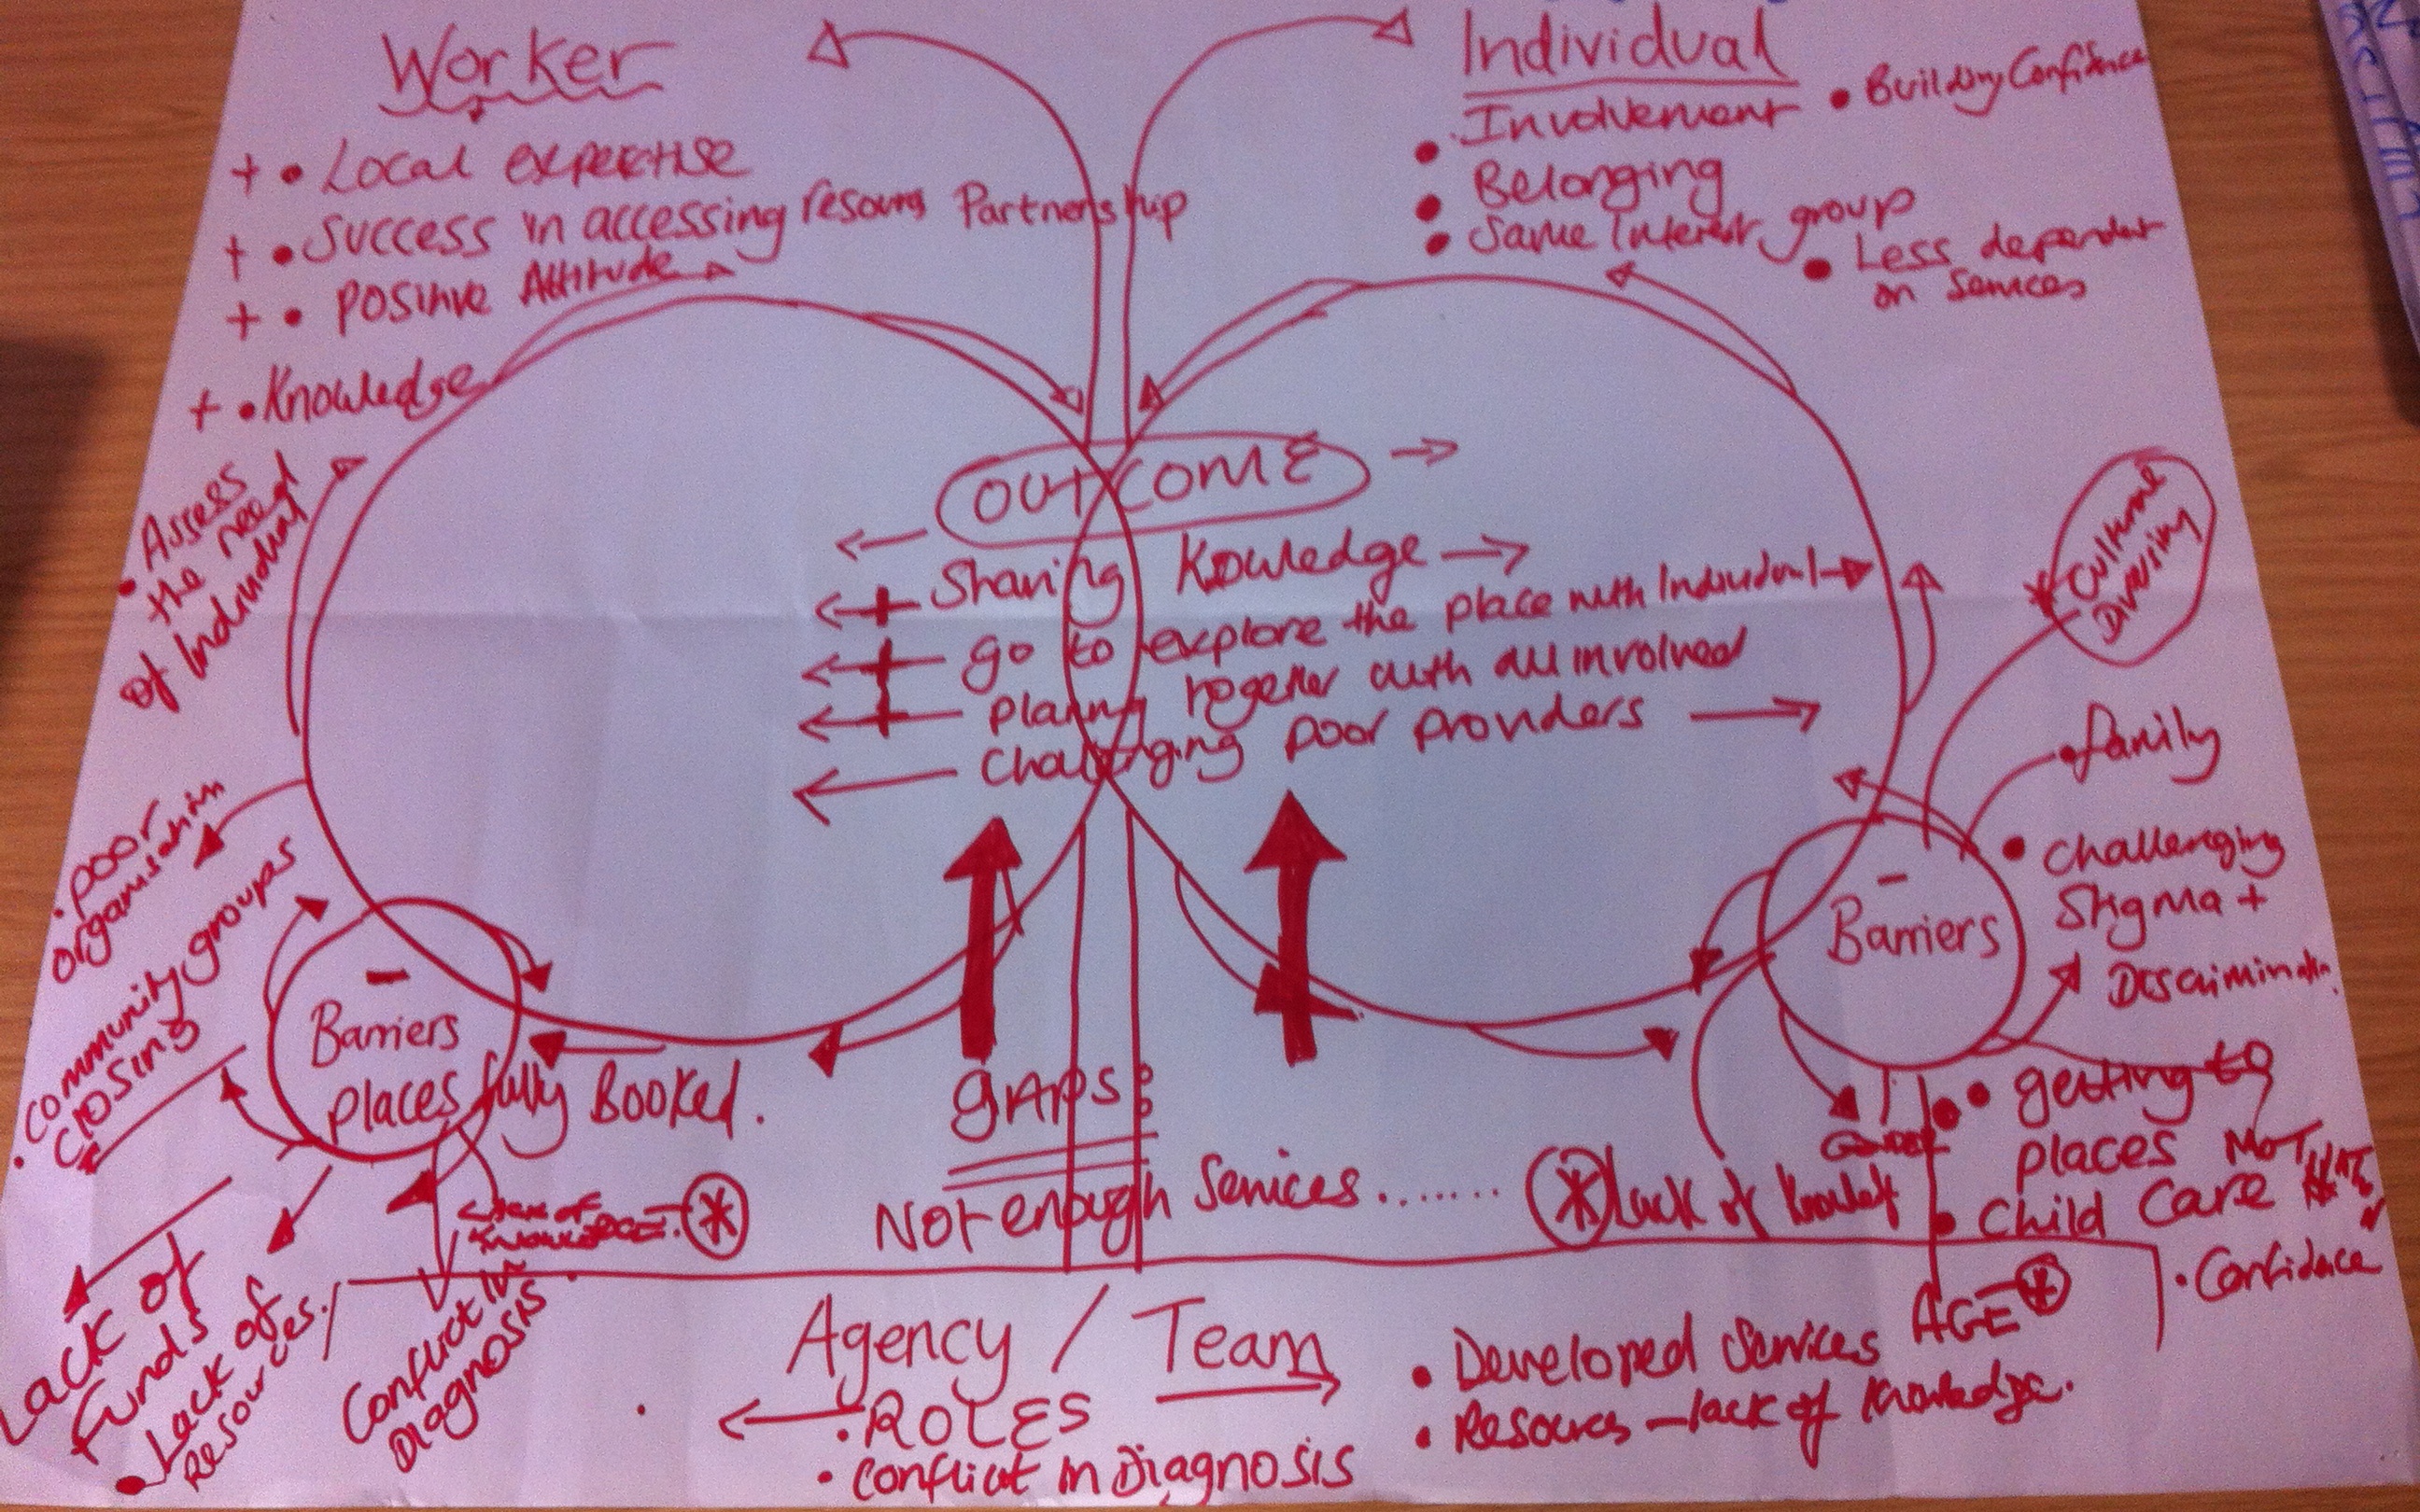 Worker
+ • Local expertise
+ • Success in accessing resours Partnership
+ • Positive Attitude
+ • Knowledge
• Assess
the need
of Individual
• poor
organisation
• Community groups
closing
Individual
• Involvement
• Building Confidence
• Belonging
• Same Interest group
• Less dependent
on services
OUTCOME
Sharing Kowledge
go to explore the place with Individual
planng together with all involved
challenging poor providers
* Culture
Diversity
• family
• challenging
Stigma +
Discriminatn.
–
Barriers
–
Barriers
places fully Booked.
gaps:
Not enough Services.......
* lack of knowledge
Gender
• getting to
places
• Child Care
• Confidence
AGE *
lack of
knowledge. *
Lack of
funds
• Lack of
Resources.
Conflict in
Diagnosis
Agency / Team
• ROLES
• conflict in Diagnosis
• Developed Services
• Resources – lack of knowledge.